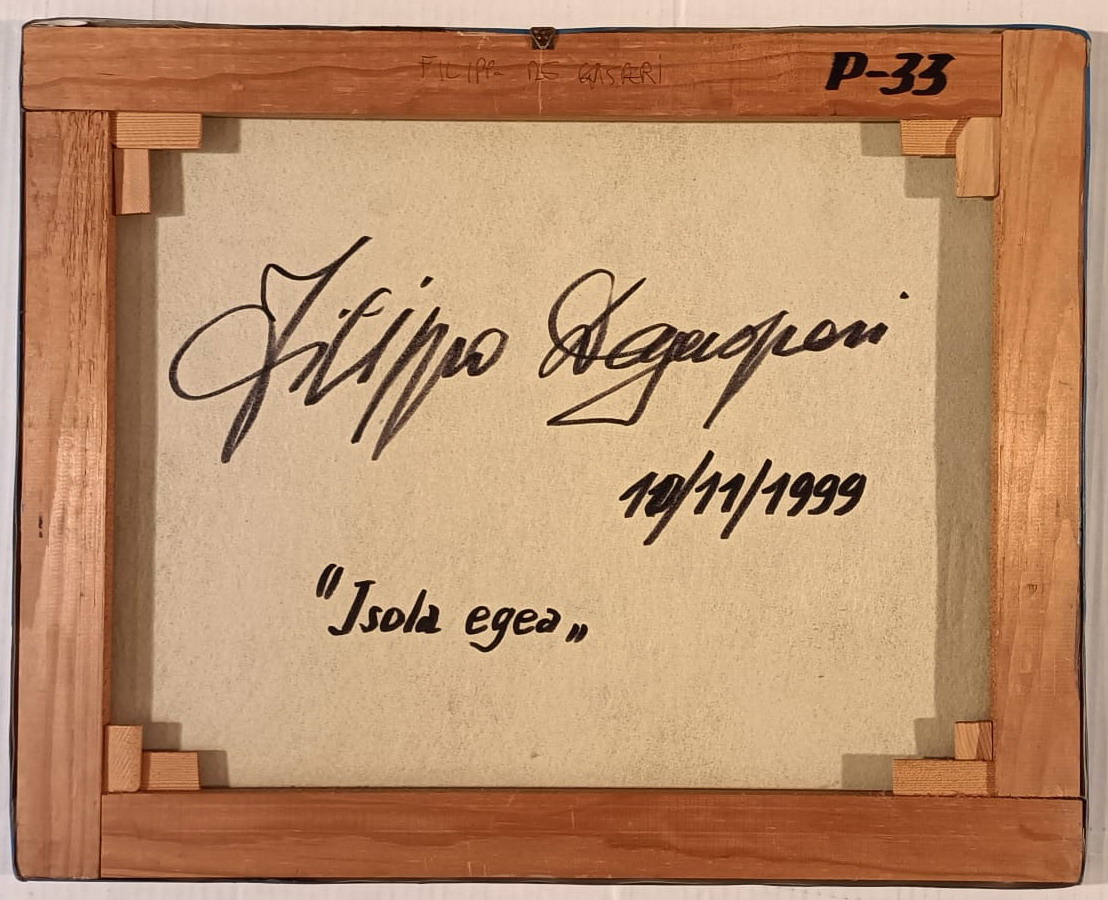 FILIPPO DE GASPERI
P-33
Filippo Degasperi
10/11/1999
"Isola egea„